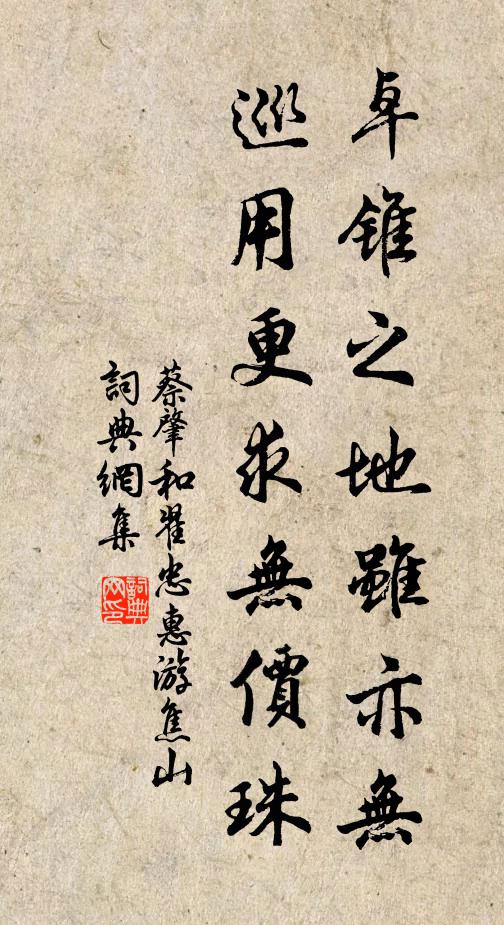 卓錐之地雖亦無
巡用更求無價珠
蔡肇和翟忠惠游焦山
詞典網集
詞典網印